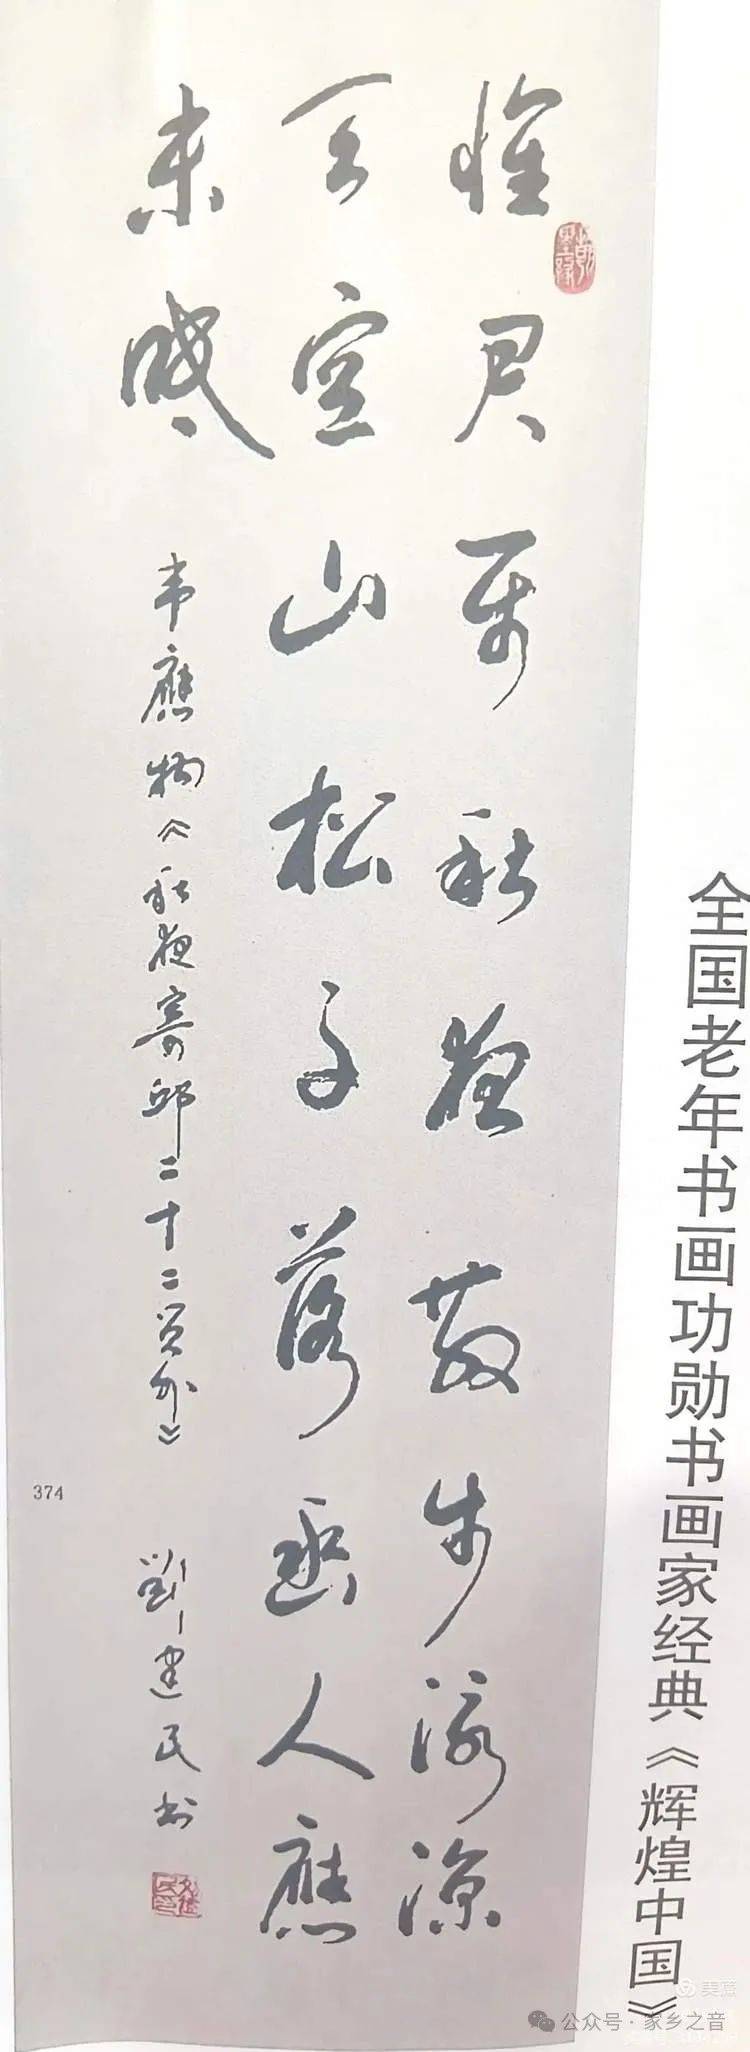 全国老年书画功勋书画家经典《辉煌中国》
懷君属秋夜散步詠涼
天空山松子落幽人應
未眠
韦應物《秋夜寄邱二十二员外》
劉建民书
374
美篇
公众号·家乡之音